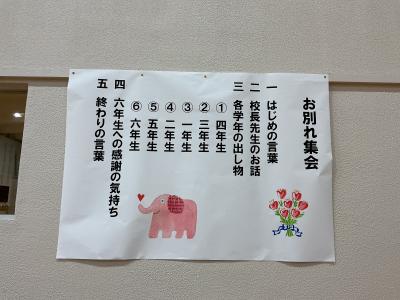 お別れ集会
一 はじめの言葉
二 校長先生のお話
三 各学年の出し物
① 四年生
② 三年生
③ 一年生
④ 二年生
⑤ 五年生
⑥ 六年生
四 六年生への感謝の気持ち
五 終わりの言葉